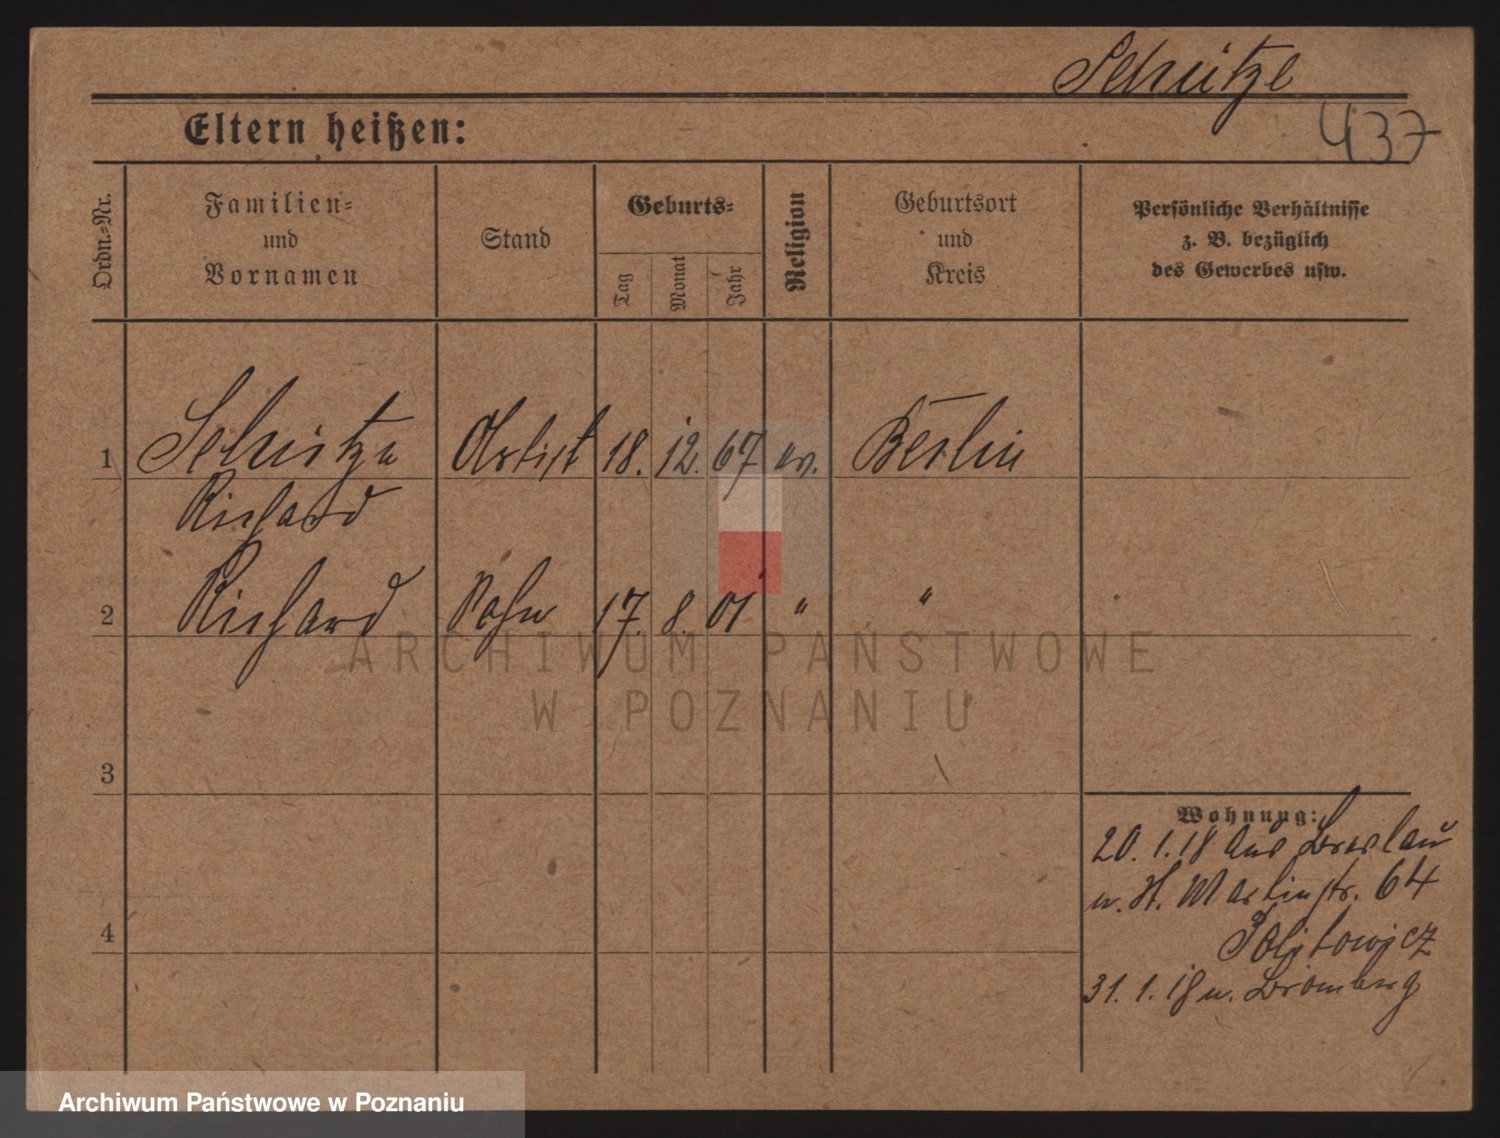 Schütze
437
Eltern heißen:
Ordn.-Nr.
Familien-
und
Vornamen
Stand
Geburts-
Tag
Monat
Jahr
Religion
Geburtsort
und
Kreis
Persönliche Verhältnisse
z. B. bezüglich
des Gewerbes usw.
1 Schütze Artist 18. 12. 67 ev. Berlin
Richard
2 Richard Sohn 17. 8. 01 " "
ARCHIWUM PAŃSTWOWE
W POZNANIU
3
Wohnung:
20. 1. 18 aus Breslau
n. St. Martinstr. 64
4
Politowicz
31. 1. 18 n. Bromberg
Archiwum Państwowe w Poznaniu